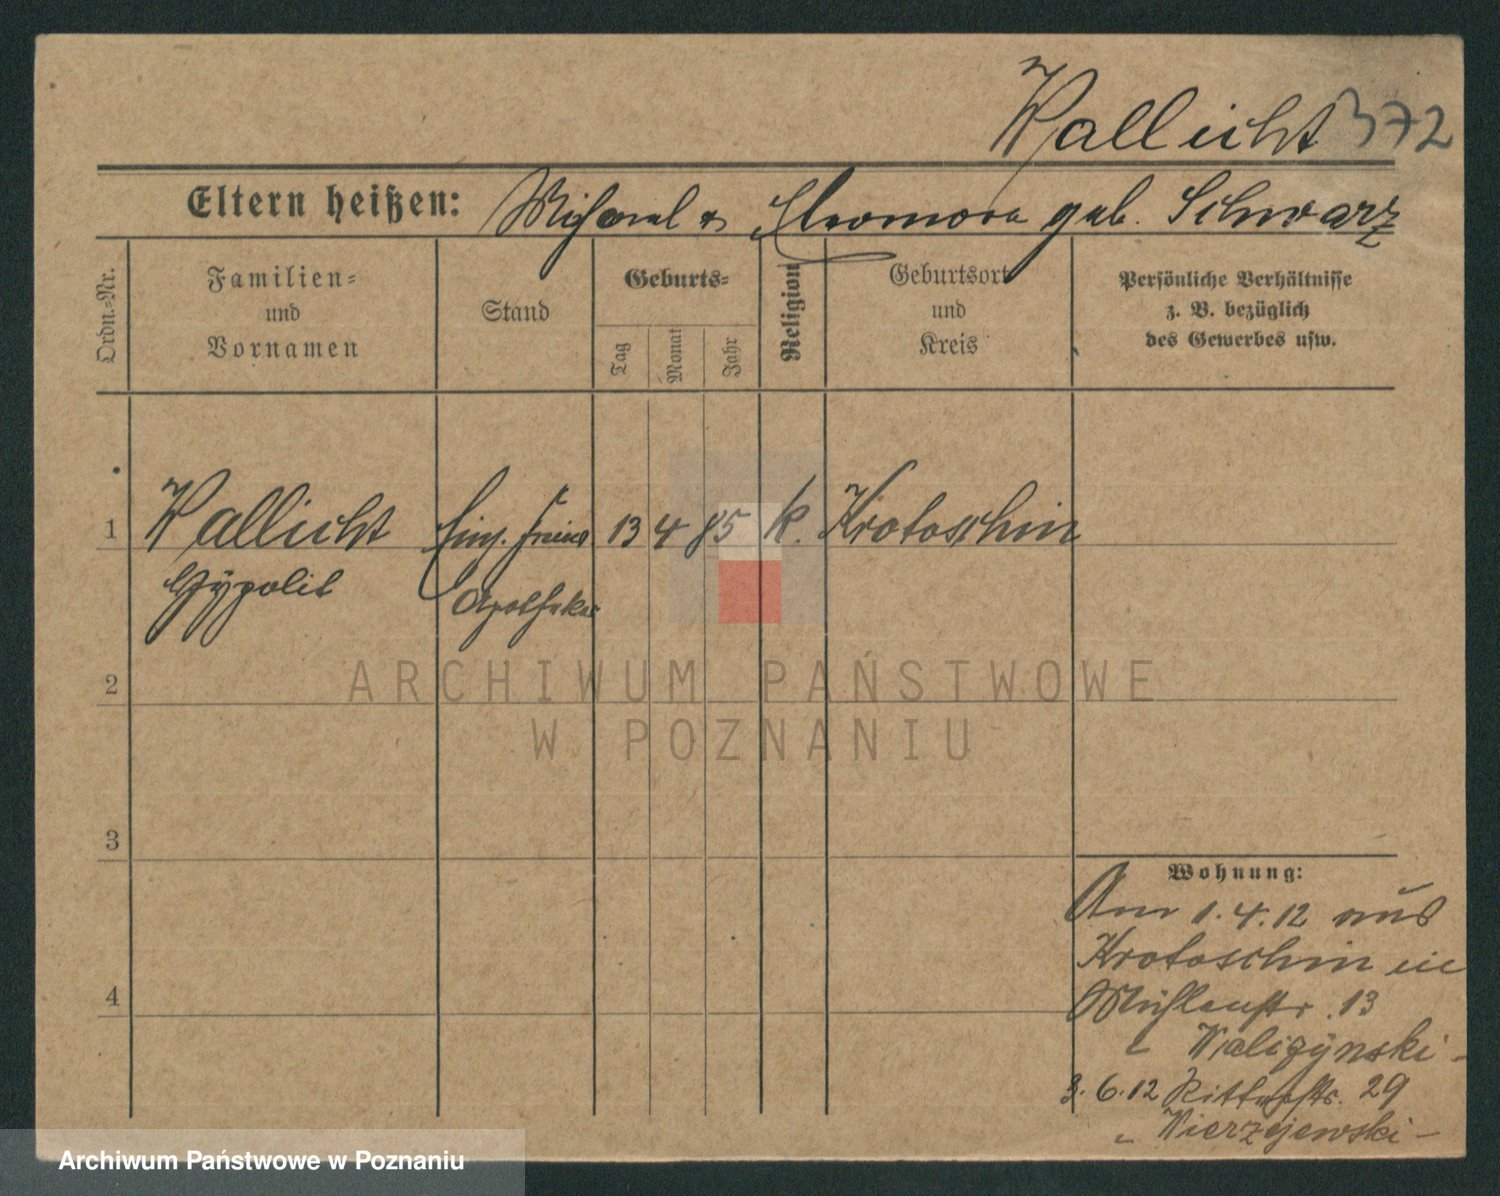 Wallicht 372
Eltern heißen: Michael u Eleonora geb. Schwarz
Ordn.-Nr.
Familien-
und
Vornamen
Stand
Geburts-
Tag
Monat
Jahr
Religion
Geburtsort
und
Kreis
Persönliche Verhältnisse
z. B. bezüglich
des Gewerbes usw.
1 Wallicht Einj. Freiw 13 4 85 k. Krotoschin
Hypolit Apotheker
ARCHIWUM PAŃSTWOWE
W POZNANIU
2
3
4
Wohnung:
Am 1.4.12 aus
Krotoschin in
Mühlenstr. 13
3.6.12 Ritterstr. 29
- Wierzejewski -
Archiwum Państwowe w Poznaniu